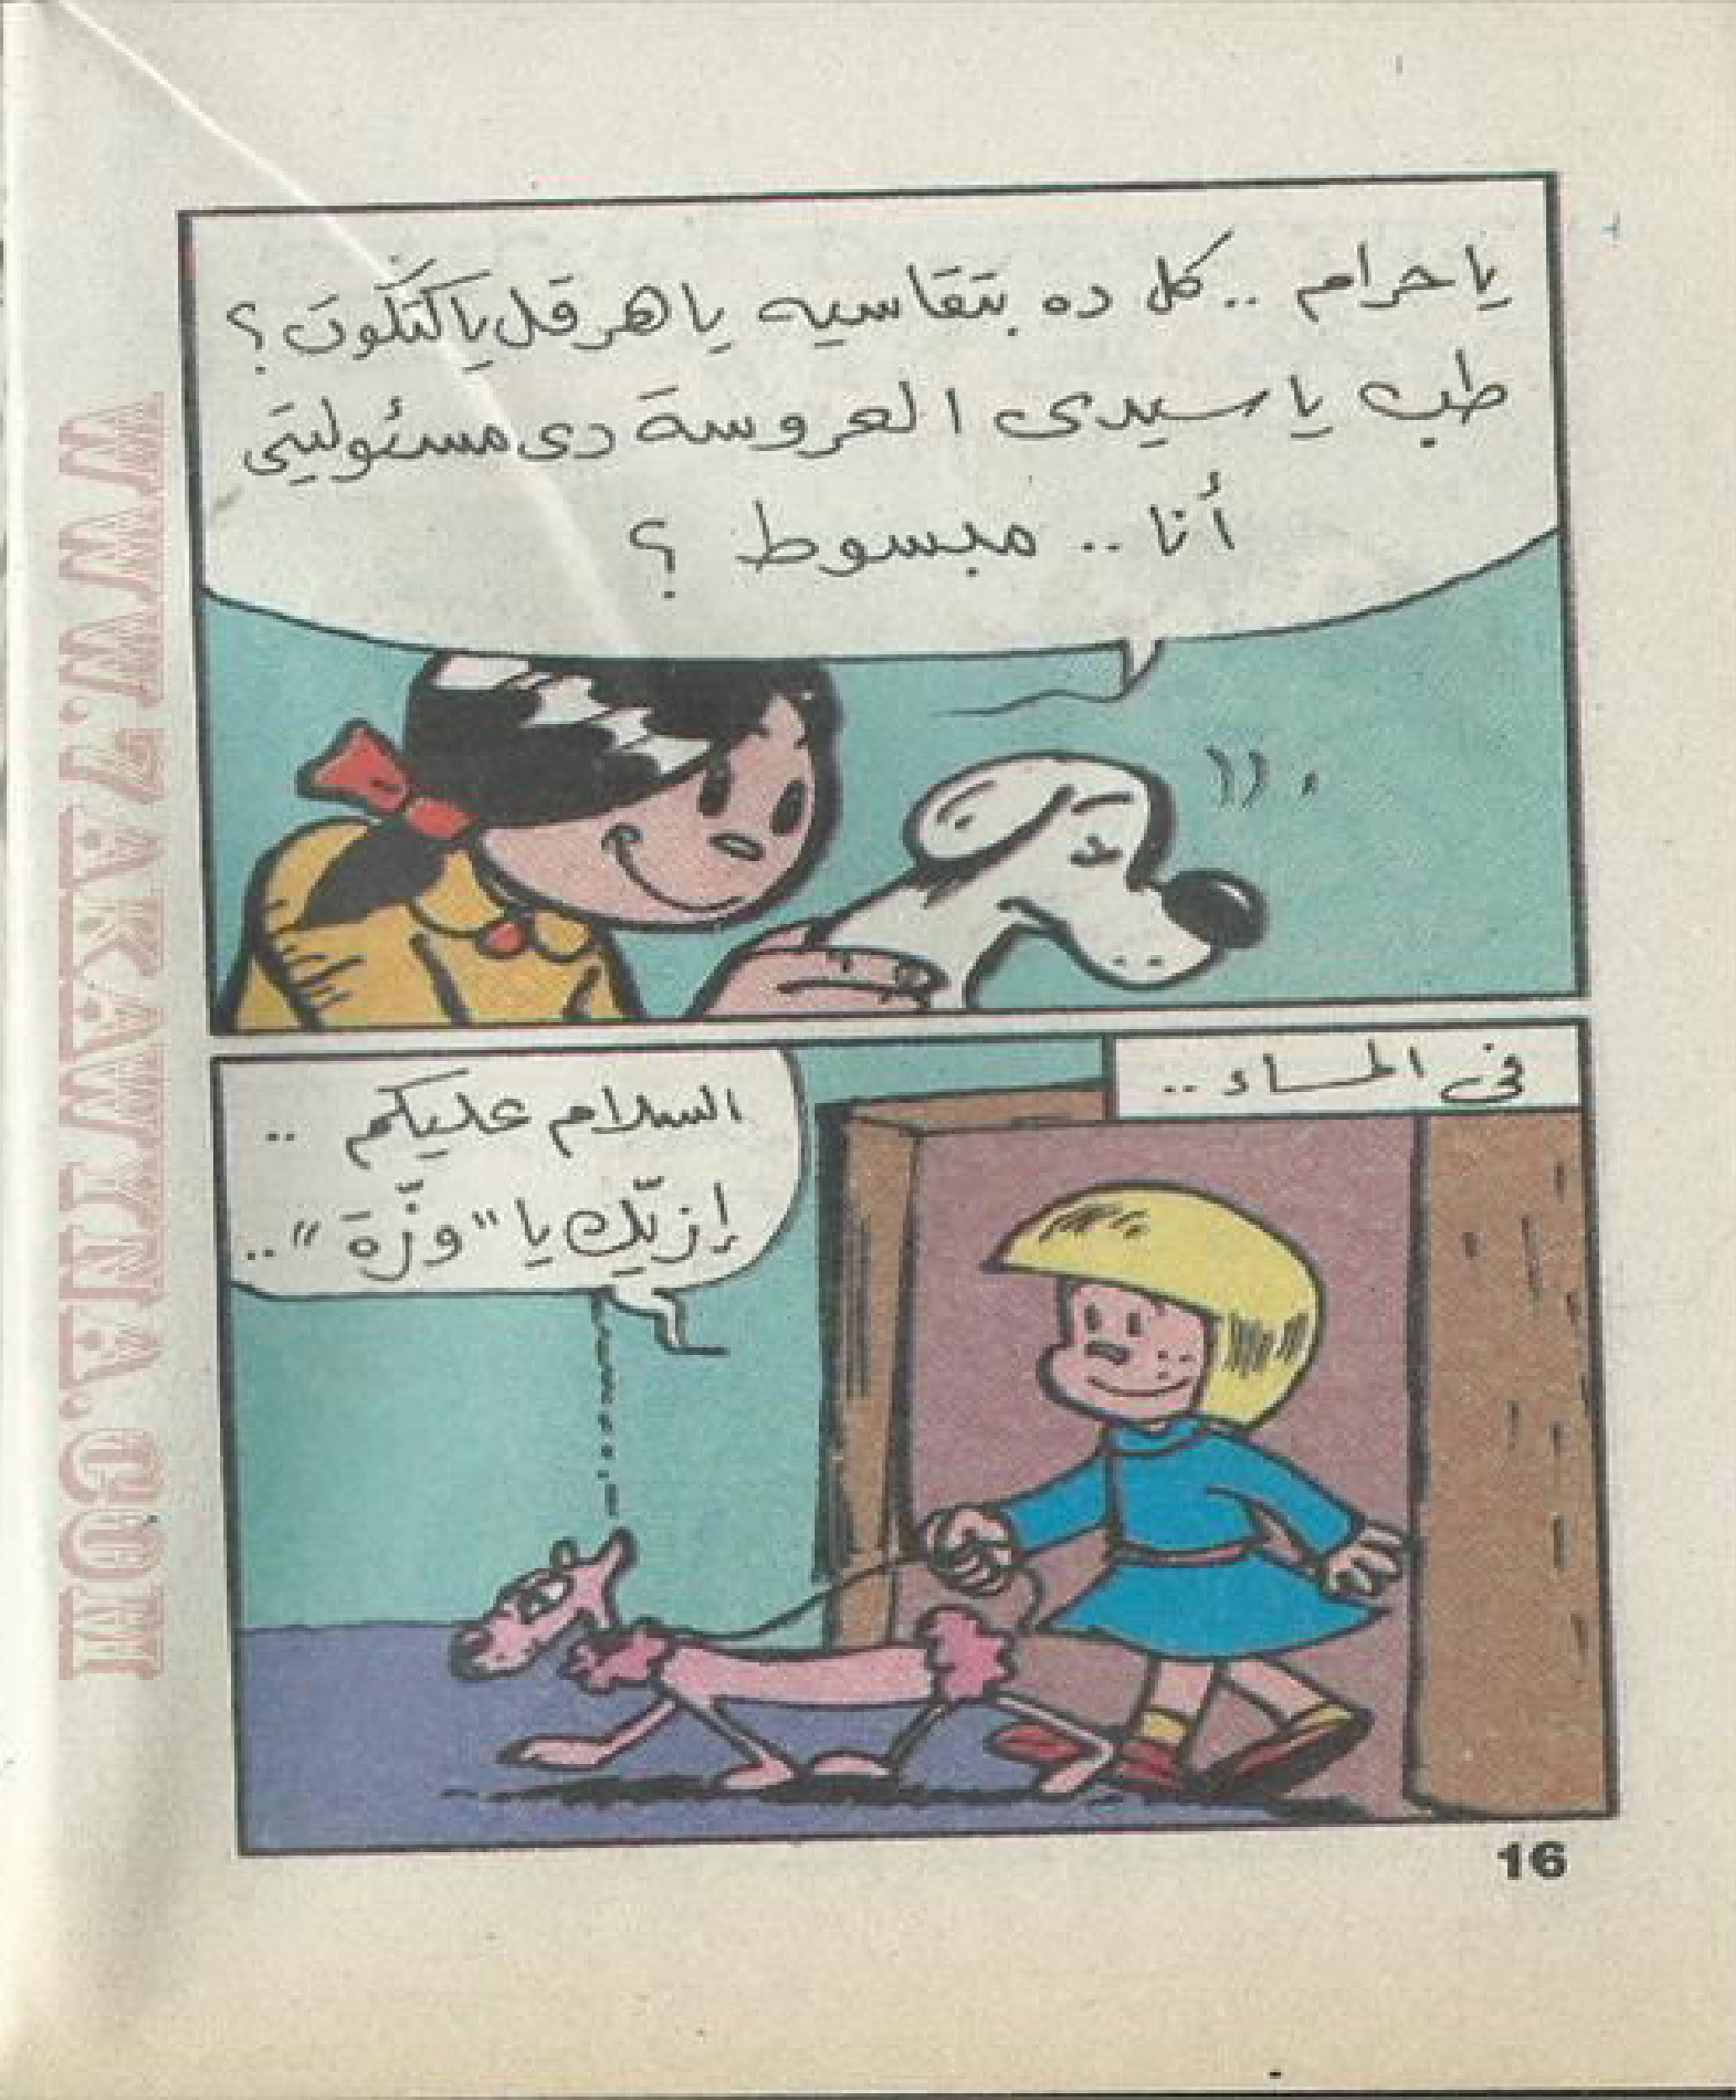 ياحرام .. كل ده بتقاسيه ياهرقل ياكتكوت؟
طب ياسيدى العروسة دى مسئوليتى
أنا .. مبسوط ؟
فى المساء ..
السلام عليكم ..
إزيّك يا "وزّة" ..
16
WWW.7AKAWITNA.COM